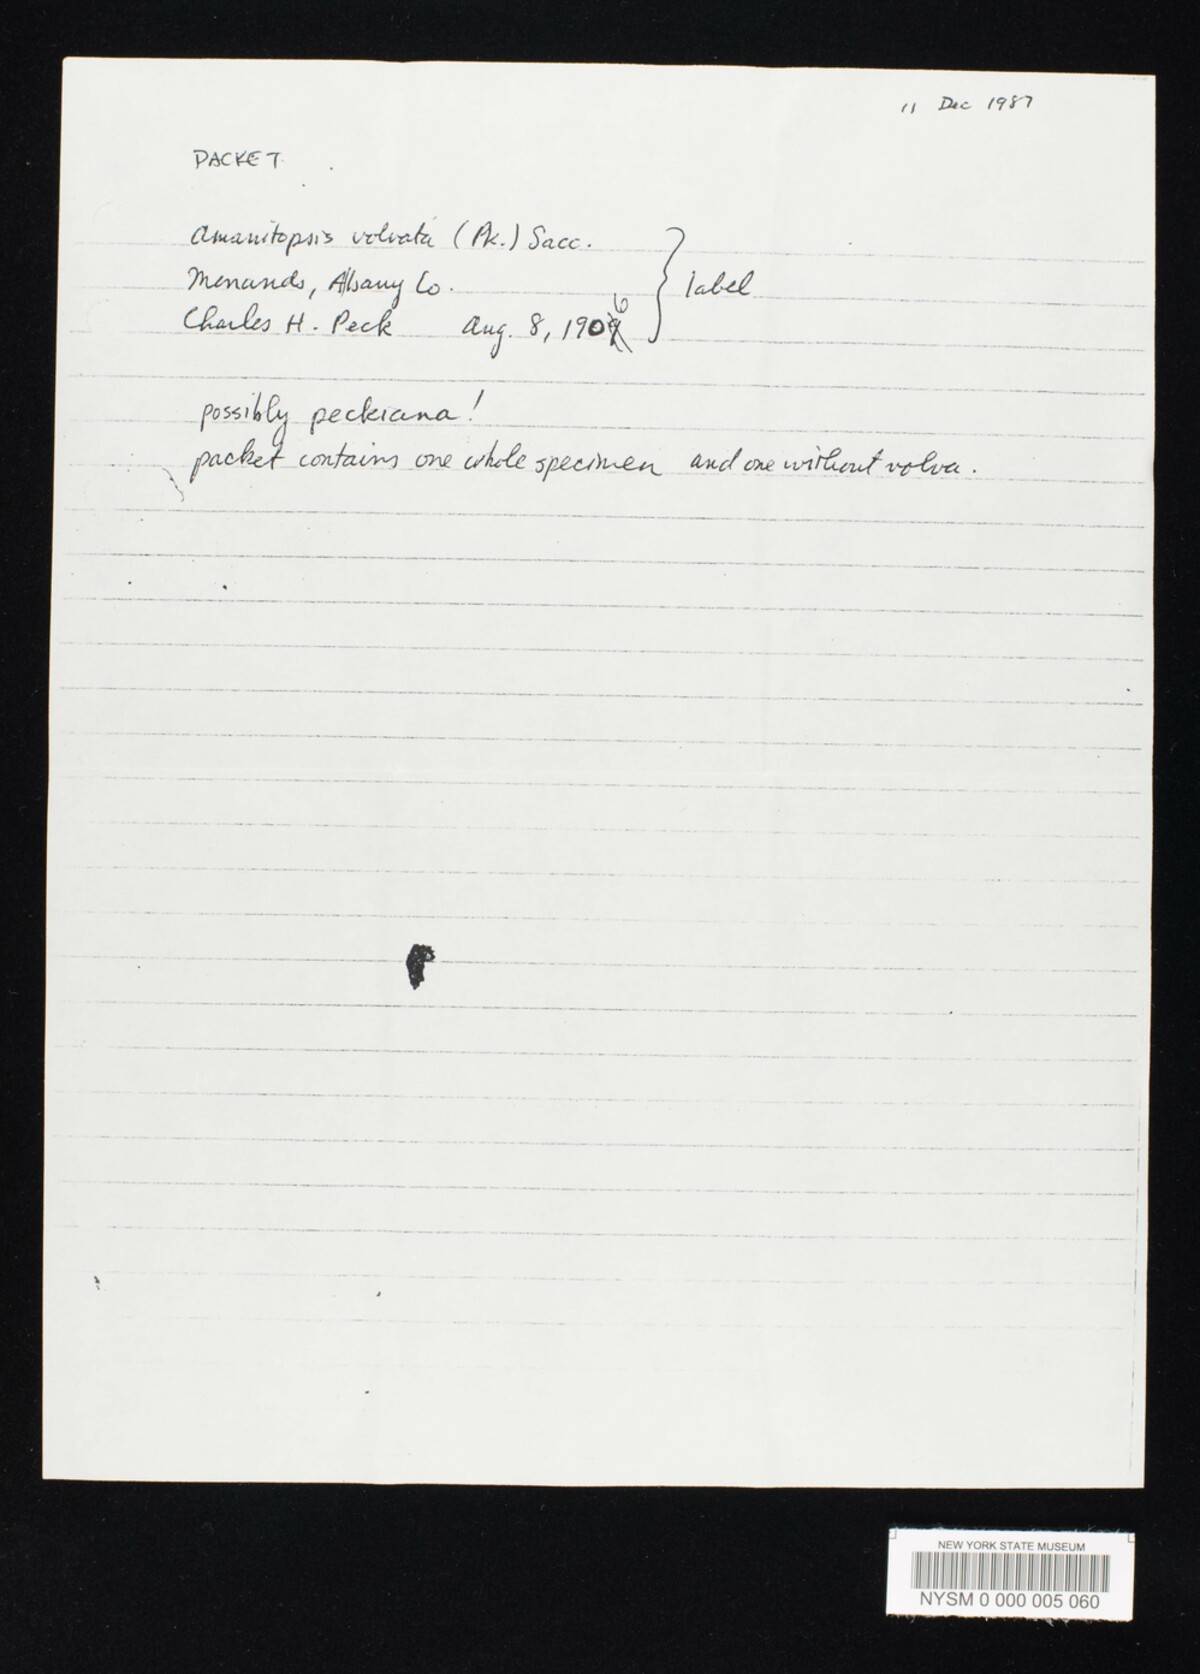 11 Dec 1987
PACKET
Amanitopsis volvata (Pk.) Sacc.
Menands, Albany Co.
Charles H. Peck Aug. 8, 1906
label
possibly peckiana!
packet contains one whole specimen and one without volva.
NEW YORK STATE MUSEUM
NYSM 0 000 005 060